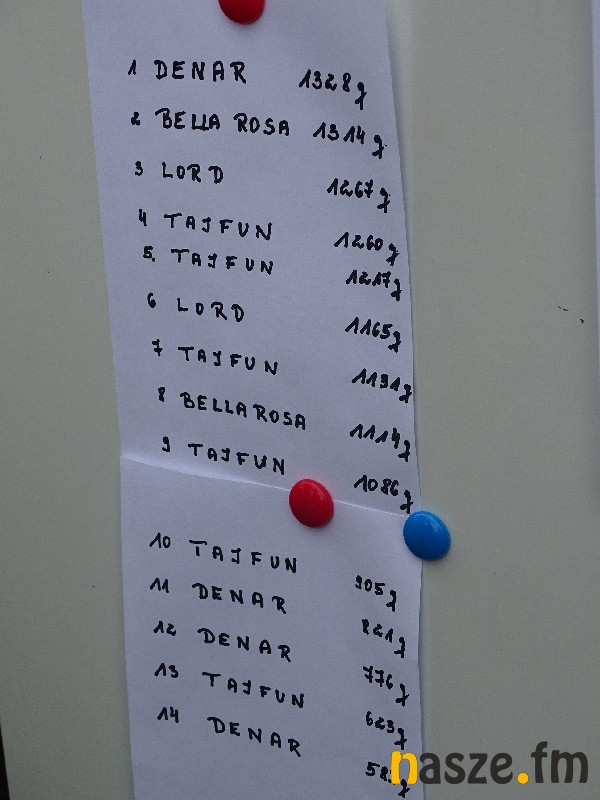 1 DENAR 1328g
2 BELLA ROSA 1314g
3 LORD 1267g
4 TAJFUN 1260g
5. TAJFUN 1217g
6 LORD 1165g
7 TAJFUN 1131g
8 BELLA ROSA 1114g
9 TAJFUN 1086g
10 TAJFUN 905g
11 DENAR 821g
12 DENAR 776g
13 TAJFUN 623g
14 DENAR
nasze.fm